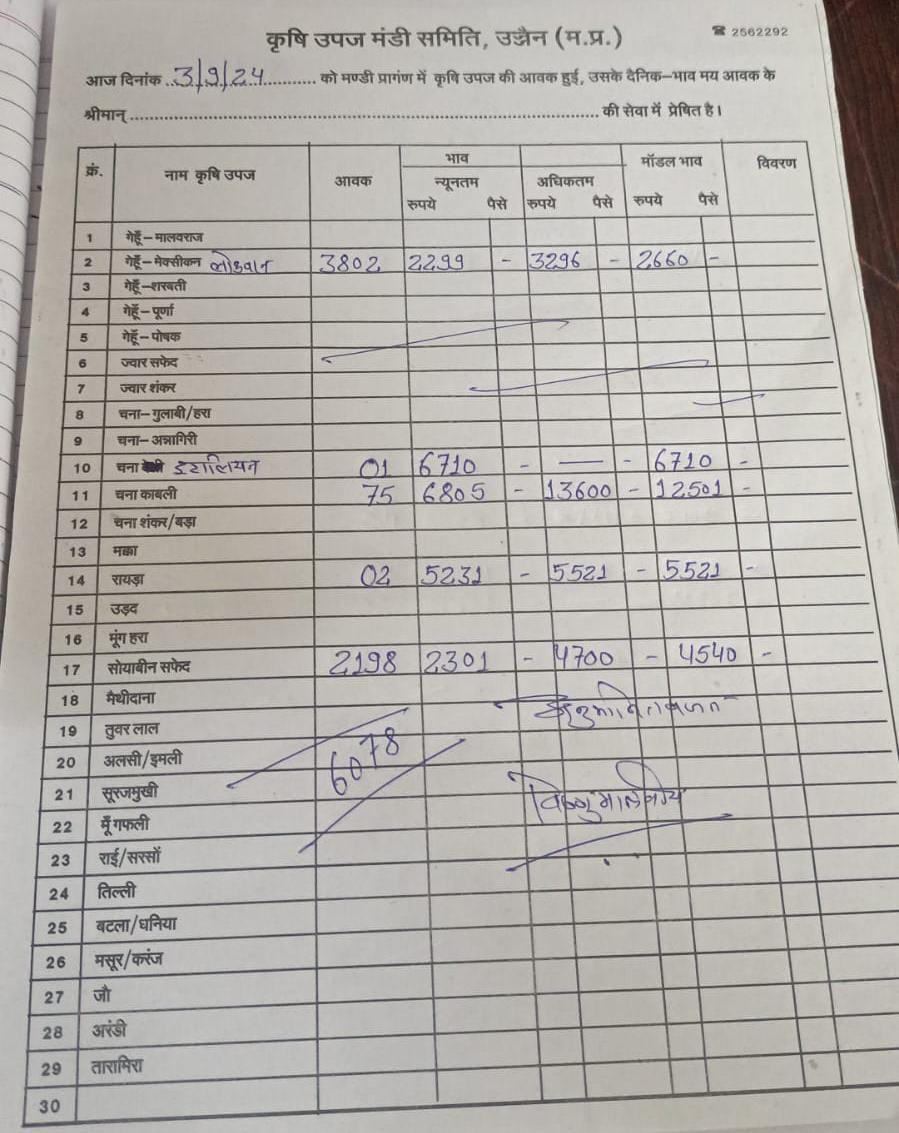 कृषि उपज मंडी समिति, उज्जैन (म.प्र.) ☎ 2562292
आज दिनांक ..3/9/24.......... को मण्डी प्रागंण में कृषि उपज की आवक हुई, उसके दैनिक–भाव मय आवक के
श्रीमान् ........................................................................ की सेवा में प्रेषित है।
क्रं. नाम कृषि उपज आवक भाव मॉडल भाव विवरण
न्यूनतम अधिकतम
रुपये पैसे रुपये पैसे रुपये पैसे
1 गेहूँ–मालवराज
2 गेहूँ–मेक्सीकन लोकवान 3802 2299 - 3296 - 2660 -
3 गेहूँ–शरबती
4 गेहूँ–पूर्णा
5 गेहूँ–पोषक
6 ज्वार सफेद
7 ज्वार शंकर
8 चना–गुलाबी/हरा
9 चना–अन्नागिरी
10 चना इटालियन 01 6710 - — - 6710 -
11 चना काबली 75 6805 - 13600 - 12501 -
12 चना शंकर/बड़ा
13 मक्का
14 रायड़ा 02 5231 - 5521 - 5521 -
15 उड़द
16 मूंग हरा
17 सोयाबीन सफेद 2198 2301 - 4700 - 4540 -
18 मैथीदाना
19 तुवर लाल
20 अलसी/इमली 6078
21 सूरजमुखी
22 मूँगफली
23 राई/सरसों
24 तिल्ली
25 बटला/धनिया
26 मसूर/करंज
27 जौ
28 अरंडी
29 तारामिरा
30